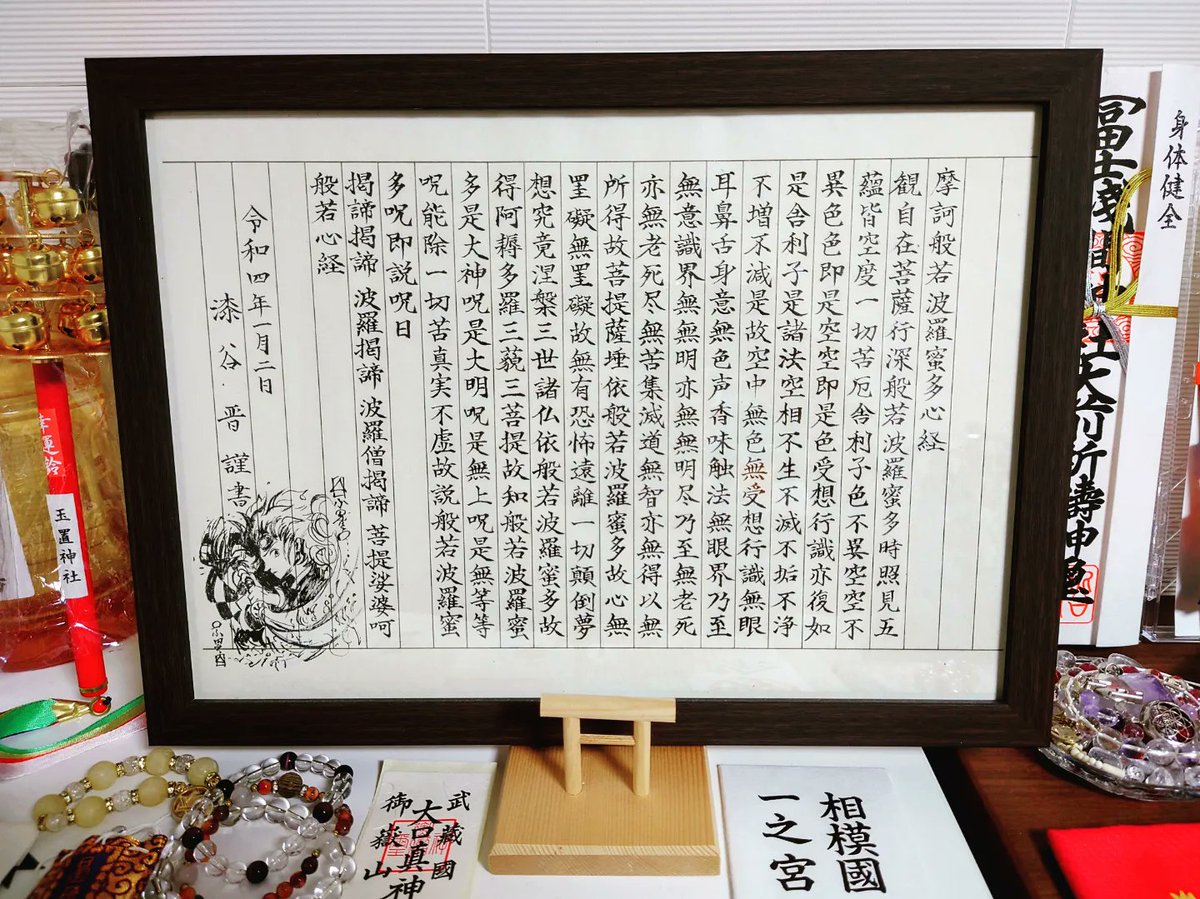 摩訶般若波羅蜜多心経
観自在菩薩行深般若波羅蜜多時照見五
蘊皆空度一切苦厄舎利子色不異空空不
異色色即是空空即是色受想行識亦復如
是舎利子是諸法空相不生不滅不垢不浄
不増不減是故空中無色無受想行識無眼
耳鼻舌身意無色声香味触法無眼界乃至
無意識界無無明亦無無明尽乃至無老死
亦無老死尽無苦集滅道無智亦無得以無
所得故菩提薩埵依般若波羅蜜多故心無
罣礙無罣礙故無有恐怖遠離一切顛倒夢
想究竟涅槃三世諸仏依般若波羅蜜多故
得阿耨多羅三藐三菩提故知般若波羅蜜
多是大神呪是大明呪是無上呪是無等等
呪能除一切苦真実不虚故説般若波羅蜜
多呪即説呪曰
掲諦掲諦 波羅掲諦 波羅僧掲諦 菩提娑婆呵
般若心経
令和四年一月二日
漆谷 晋 謹書
身体健全
幸運鈴
玉置神社
武蔵國
大口真神
御嶽山
相模國
一之宮